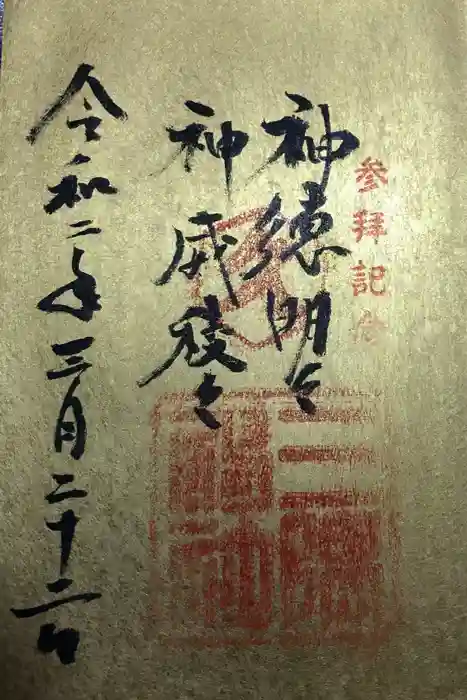 参拝記念
神徳明々
神威稜々
令和二年三月二十二日